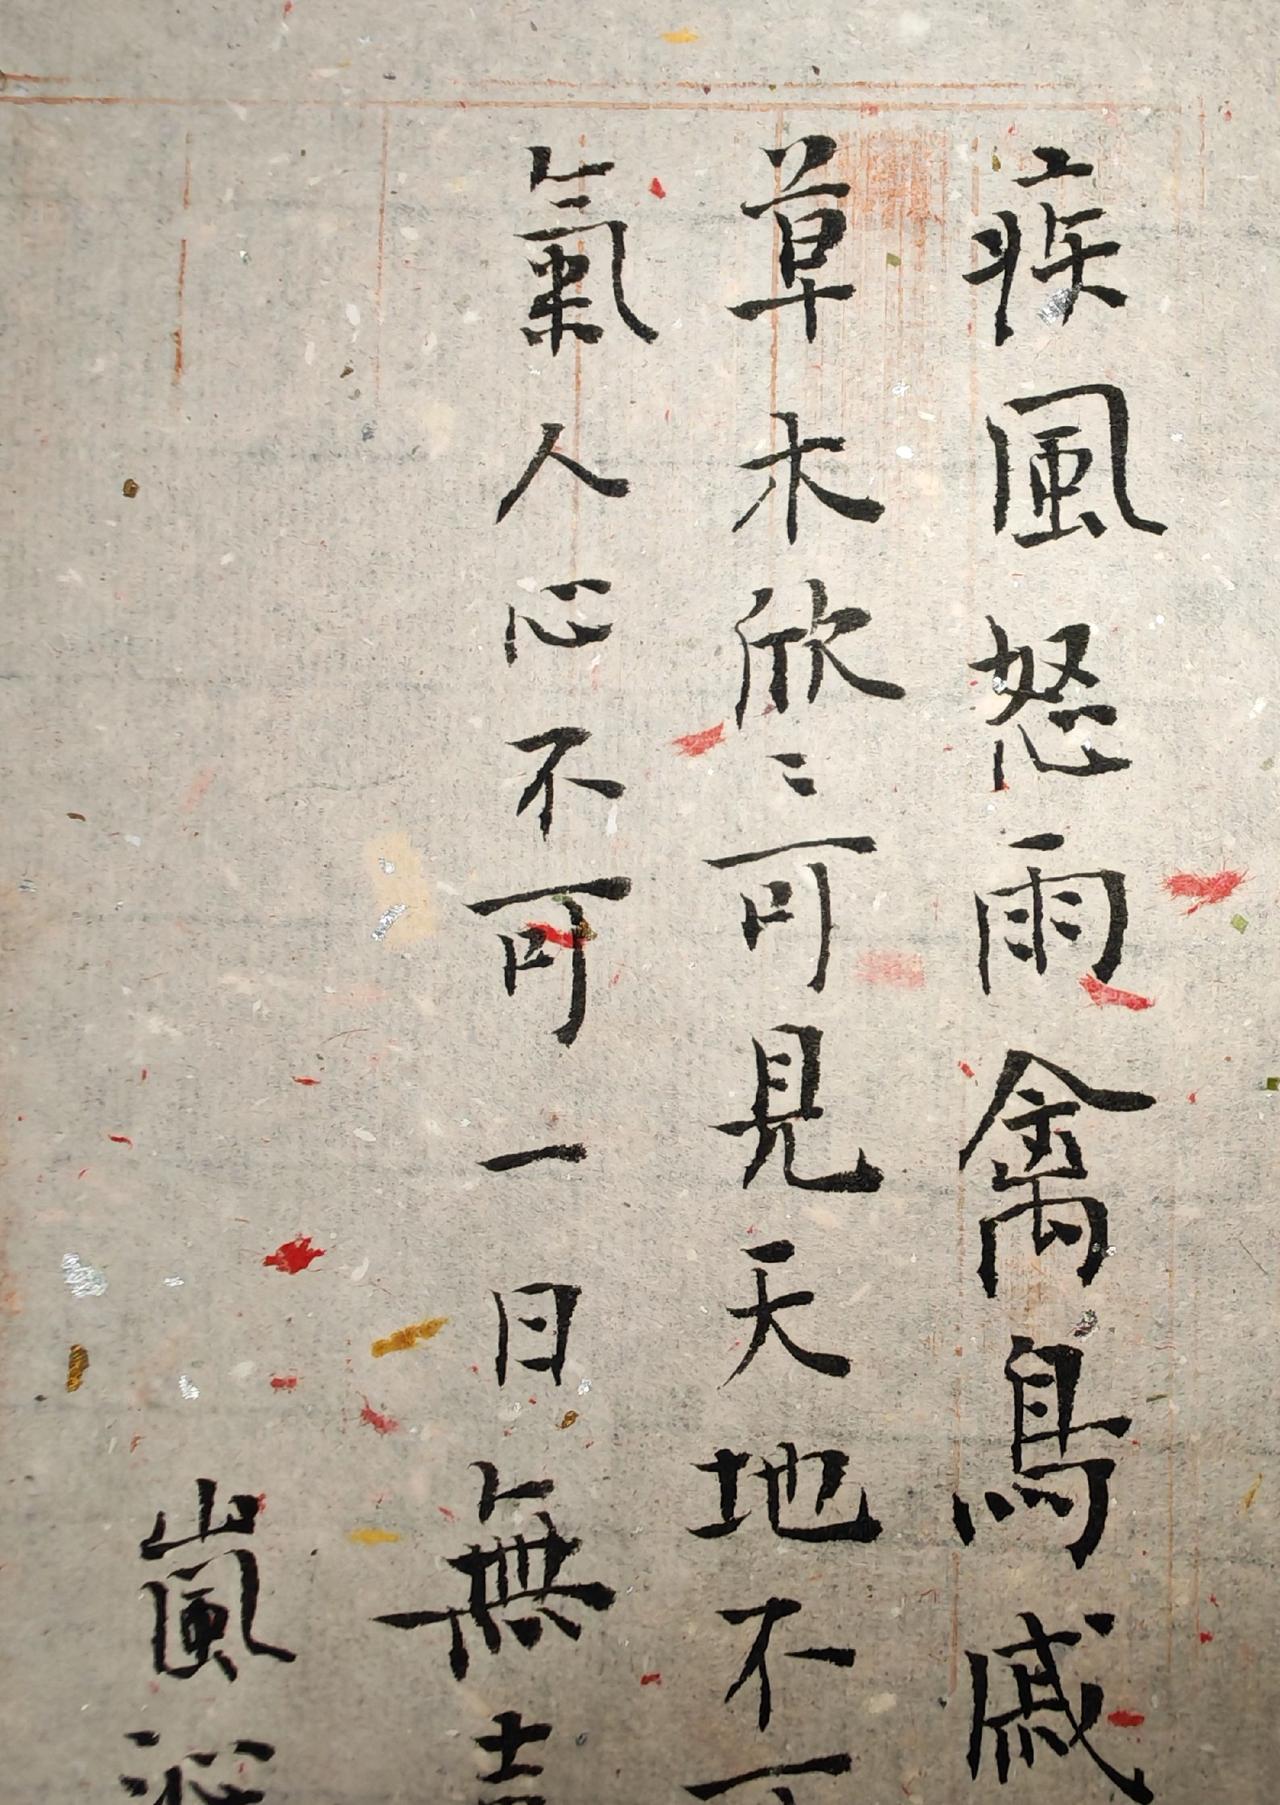 疾風怒雨禽鳥戚
草木欣〻可見天地不可
氣人心不可一日無喜
嵐沁